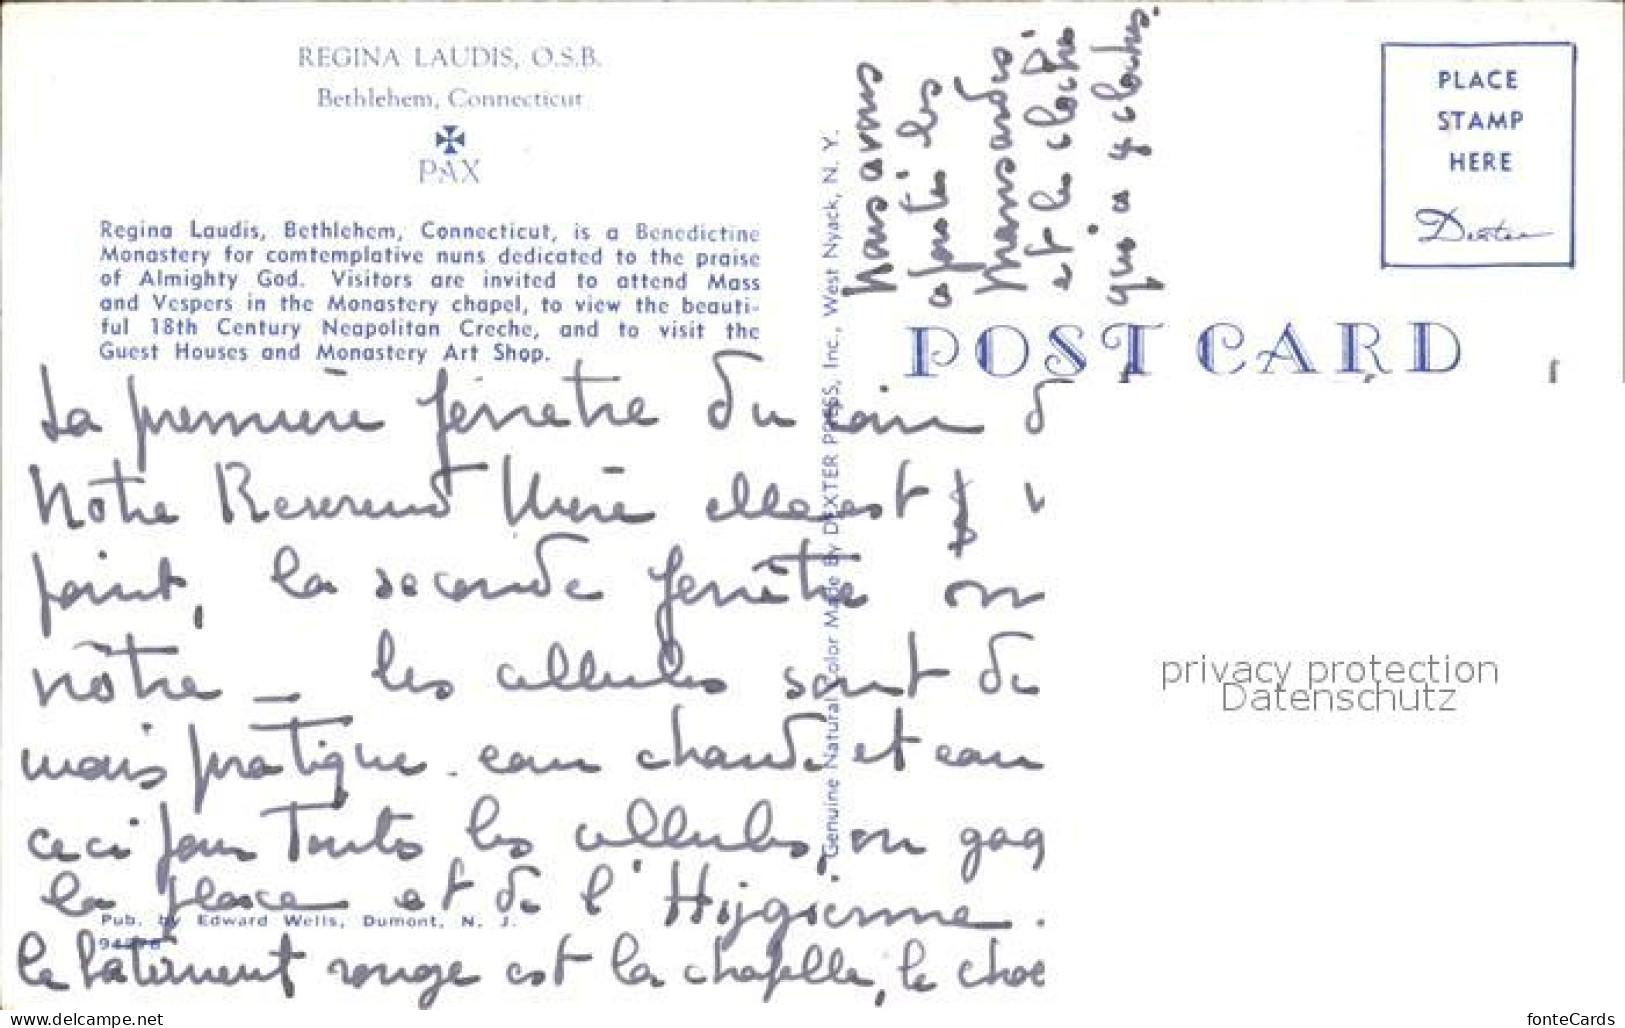 REGINA LAUDIS, O.S.B.
Bethlehem, Connecticut
PAX
Regina Laudis, Bethlehem, Connecticut, is a Benedictine
Monastery for comtemplative nuns dedicated to the praise
of Almighty God. Visitors are invited to attend Mass
and Vespers in the Monastery chapel, to view the beauti-
ful 18th Century Neapolitan Creche, and to visit the
Guest Houses and Monastery Art Shop.
La première fenetre du coin d
Notre Reverend Mère elle est
point, la seconde fenêtre
nôtre _ les cellules sont de
mais pratique. eau chaude et eau
ceci pour Toutes les cellules, on gag
la place et de l'Hijgienne.
le batiment rouge est la chapelle, le choe
Pub. by Edward Wells, Dumont, N. J.
Genuine Natural Color Made By DEXTER PRESS, Inc., West Nyack, N. Y.
nous avons
les
mansardes
et les cloches
qui a 4 cloches.
PLACE
STAMP
HERE
Dexter
POST CARD
privacy protection
Datenschutz
www.delcampe.net
fonteCards